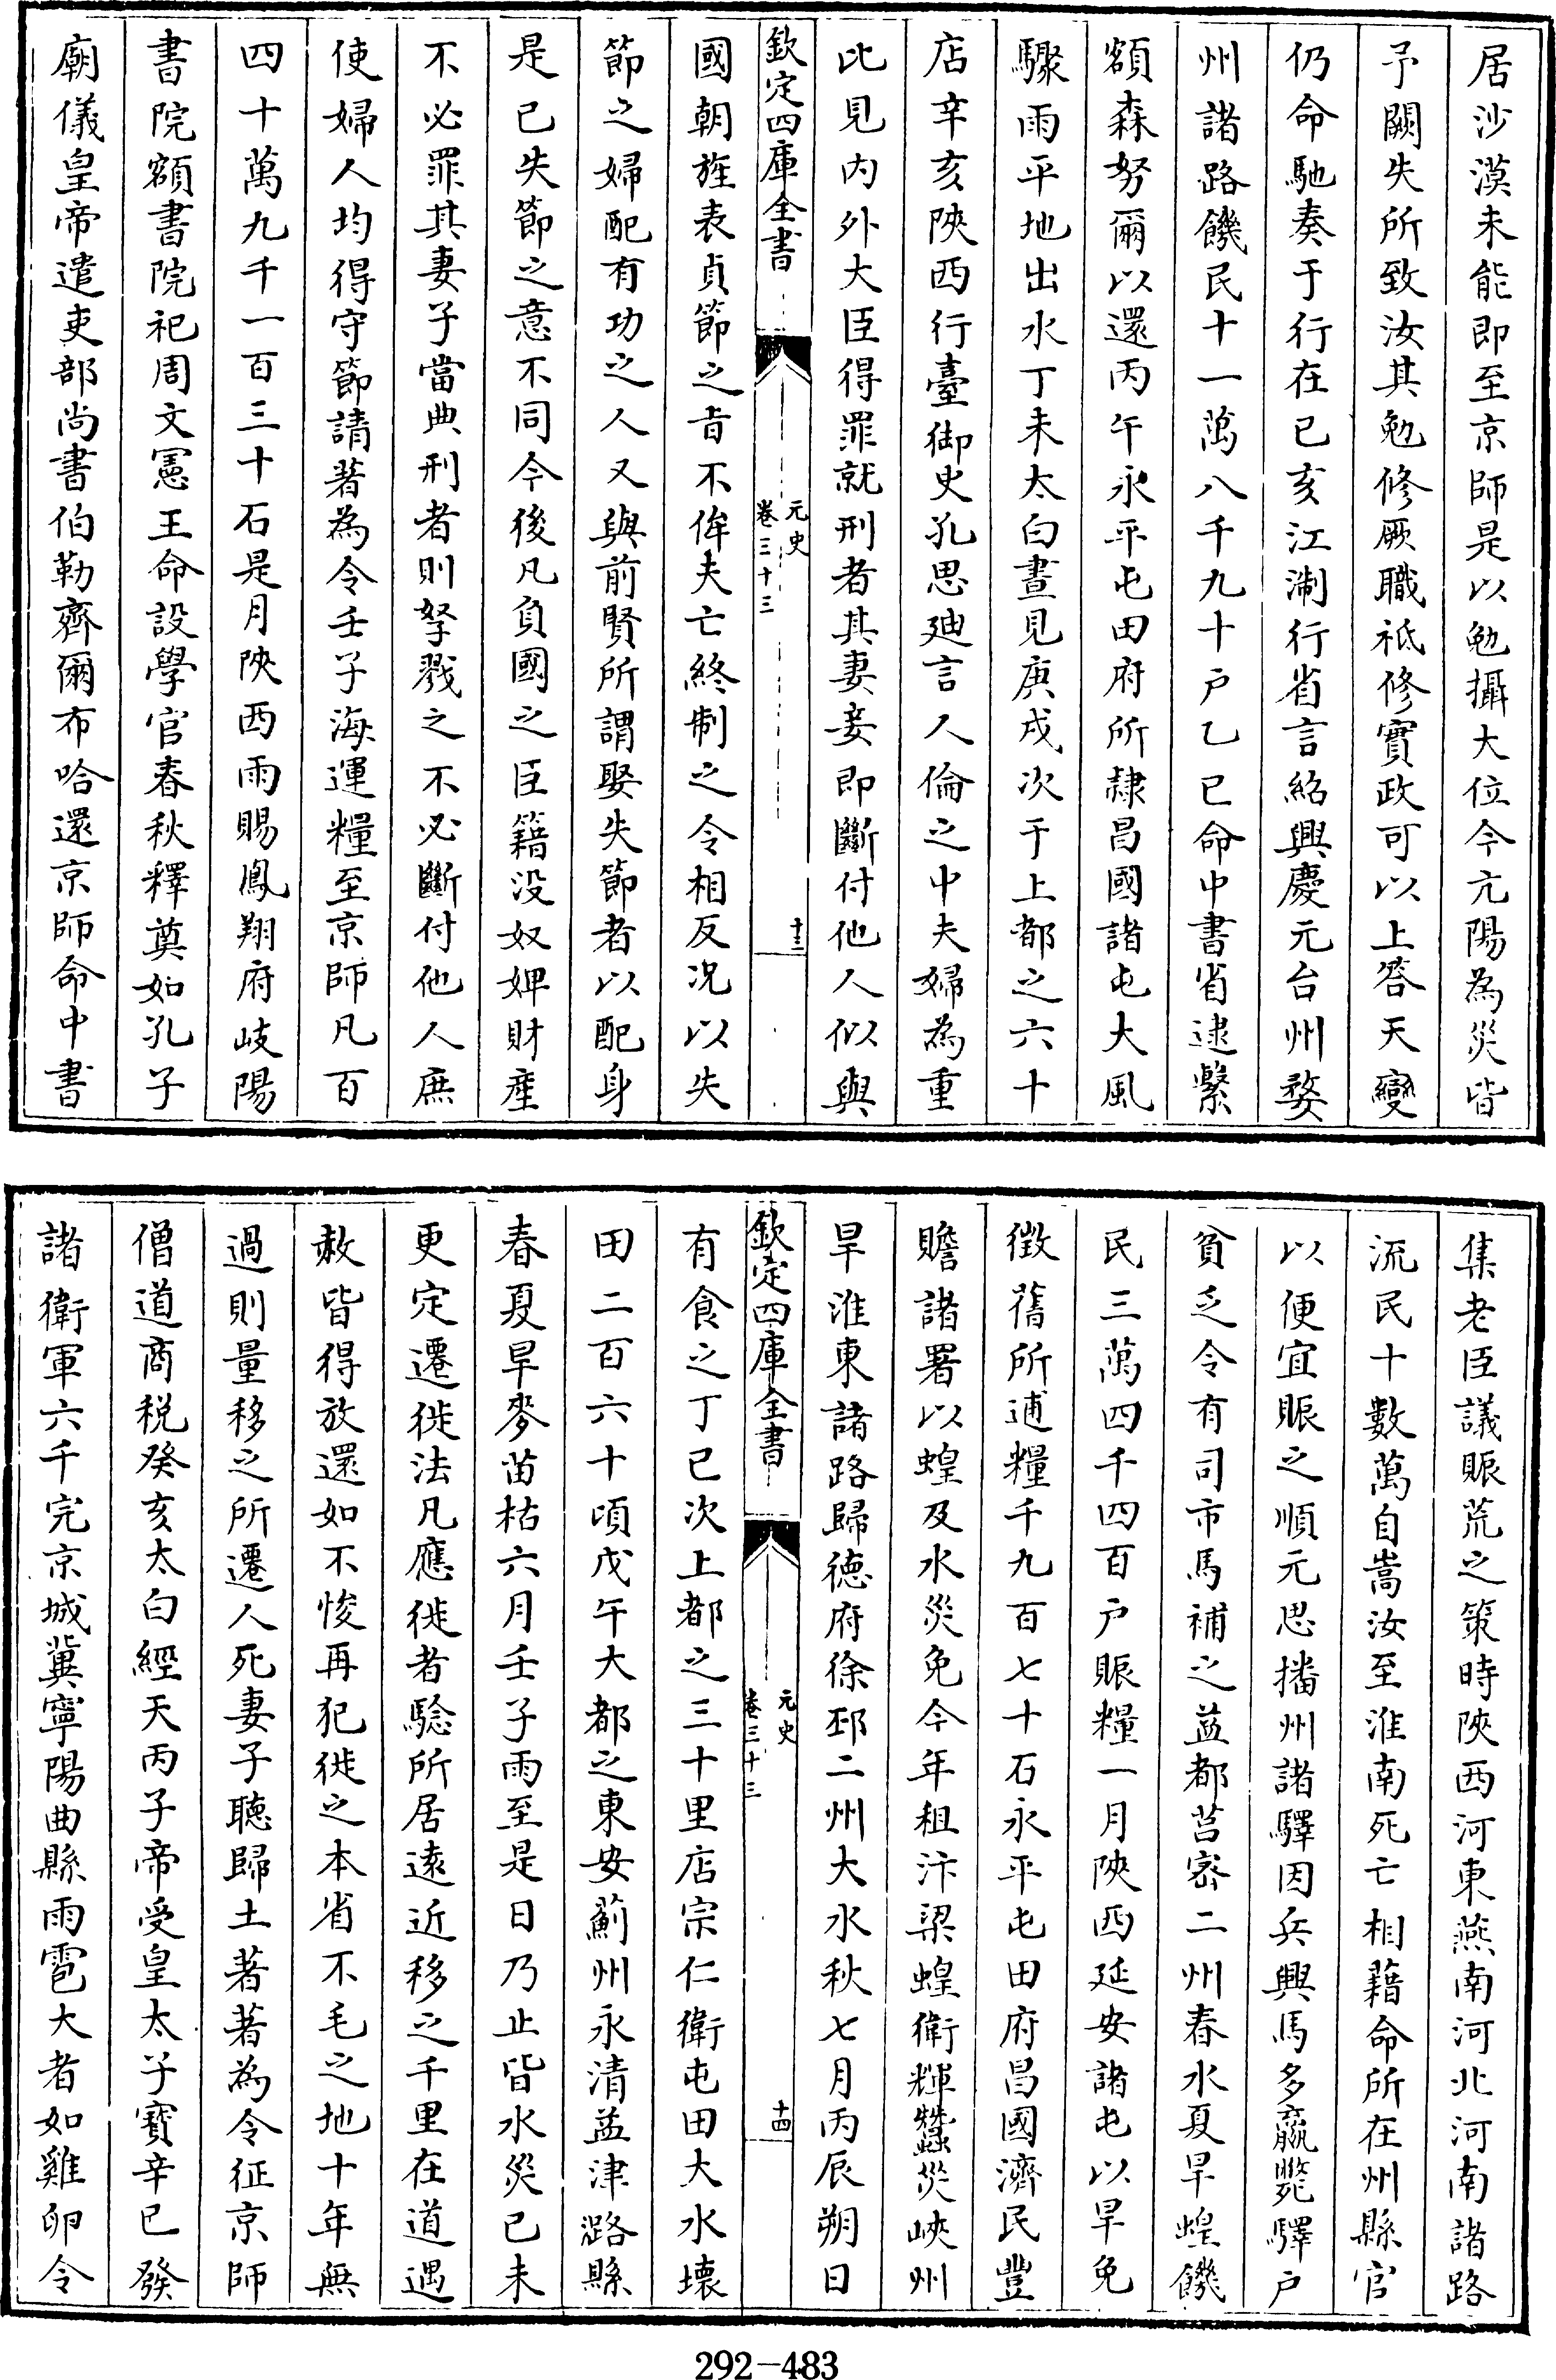 居沙漠未能即至京師是以勉攝大位今亢陽為災皆
予闕失所致汝其勉修厥職祗修實政可以上答天變
仍命馳奏于行在己亥江浙行省言紹興慶元台州婺
州諸路饑民十一萬八千九十户乙巳命中書省逮繫
額森努爾以還丙午永平屯田府所隸昌國諸屯大風
驟雨平地出水丁未太白晝見庚戌次于上都之六十
店辛亥陜西行臺御史孔思廸言人倫之中夫婦為重
比見内外大臣得罪就刑者其妻妾即斷付他人似與
欽定四庫全書
元史
卷三十三
十三
國朝旌表貞節之旨不侔夫亡終制之令相反况以失
節之婦配有功之人又與前賢所謂娶失節者以配身
是已失節之意不同今後凡負國之臣籍没奴婢財産
不必罪其妻子當典刑者則孥戮之不必斷付他人庶
使婦人均得守節請著為令壬子海運糧至京師凡百
四十萬九千一百三十石是月陜西雨賜鳳翔府岐陽
書院額書院祀周文憲王命設學官春秋釋奠如孔子
廟儀皇帝遣吏部尚書伯勒齊爾布哈還京師命中書
集老臣議賑荒之策時陜西河東燕南河北河南諸路
流民十數萬自嵩汝至淮南死亡相藉命所在州縣官
以便宜賑之順元思播州諸驛因兵興馬多羸斃驛户
貧乏令有司市馬補之益都莒密二州春水夏旱蝗饑
民三萬四千四百户賑糧一月陜西延安諸屯以旱免
徵舊所逋糧千九百七十石永平屯田府昌國濟民豐
贍諸署以蝗及水災免今年租汴梁蝗衛輝蠶災峽州
旱淮東諸路歸德府徐邳二州大水秋七月丙辰朔日
欽定四庫全書
元史
卷三十三
十四
有食之丁巳次上都之三十里店宗仁衛屯田大水壞
田二百六十頃戊午大都之東安薊州永清益津潞縣
春夏旱麥苗枯六月壬子雨至是日乃止皆水災己未
更定遷徙法凡應徙者驗所居遠近移之千里在道遇
赦皆得放還如不悛再犯徙之本省不毛之地十年無
過則量移之所遷人死妻子聽歸土著著為令征京師
僧道商税癸亥太白經天丙子帝受皇太子寶辛巳發
諸衛軍六千完京城冀寧陽曲縣雨雹大者如雞卵令
292-483